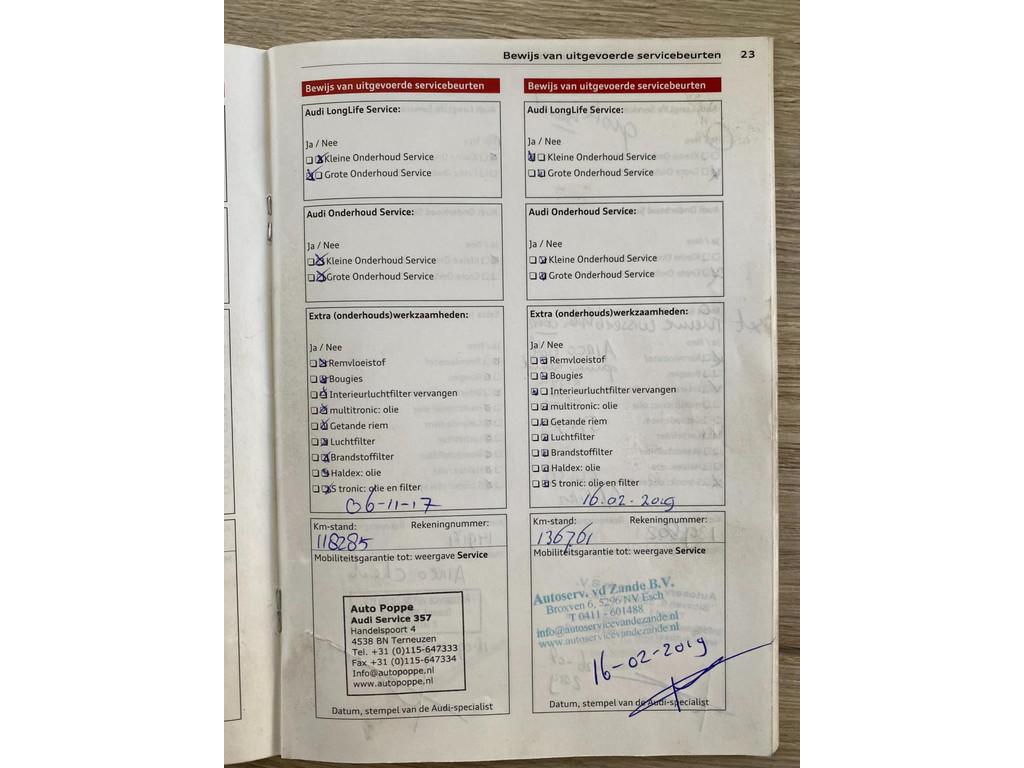 Bewijs van uitgevoerde servicebeurten 23
Bewijs van uitgevoerde servicebeurten
Audi LongLife Service:
Ja / Nee
Kleine Onderhoud Service
Grote Onderhoud Service
Audi Onderhoud Service:
Ja / Nee
Kleine Onderhoud Service
Grote Onderhoud Service
Extra (onderhouds)werkzaamheden:
Ja / Nee
Remvloeistof
Bougies
Interieurluchtfilter vervangen
multitronic: olie
Getande riem
Luchtfilter
Brandstoffilter
Haldex: olie
S tronic: olie en filter
06-11-17
Km-stand: Rekeningnummer:
118285
Mobiliteitsgarantie tot: weergave Service
Auto Poppe
Audi Service 357
Handelspoort 4
4538 BN Terneuzen
Tel. +31 (0)115-647333
Fax +31 (0)115-647334
Info@autopoppe.nl
www.autopoppe.nl
Datum, stempel van de Audi-specialist
Bewijs van uitgevoerde servicebeurten
Audi LongLife Service:
Ja / Nee
Kleine Onderhoud Service
Grote Onderhoud Service
Audi Onderhoud Service:
Ja / Nee
Kleine Onderhoud Service
Grote Onderhoud Service
Extra (onderhouds)werkzaamheden:
Ja / Nee
Remvloeistof
Bougies
Interieurluchtfilter vervangen
multitronic: olie
Getande riem
Luchtfilter
Brandstoffilter
Haldex: olie
S tronic: olie en filter
16.02.2019
Km-stand: Rekeningnummer:
136761
Mobiliteitsgarantie tot: weergave Service
Autoserv. vd Zande B.V.
Broxven 6, 5296 NV Esch
T 0411 - 601488
info@autoservicevandezande.nl
www.autoservicevandezande.nl
16-02-2019
Datum, stempel van de Audi-specialist